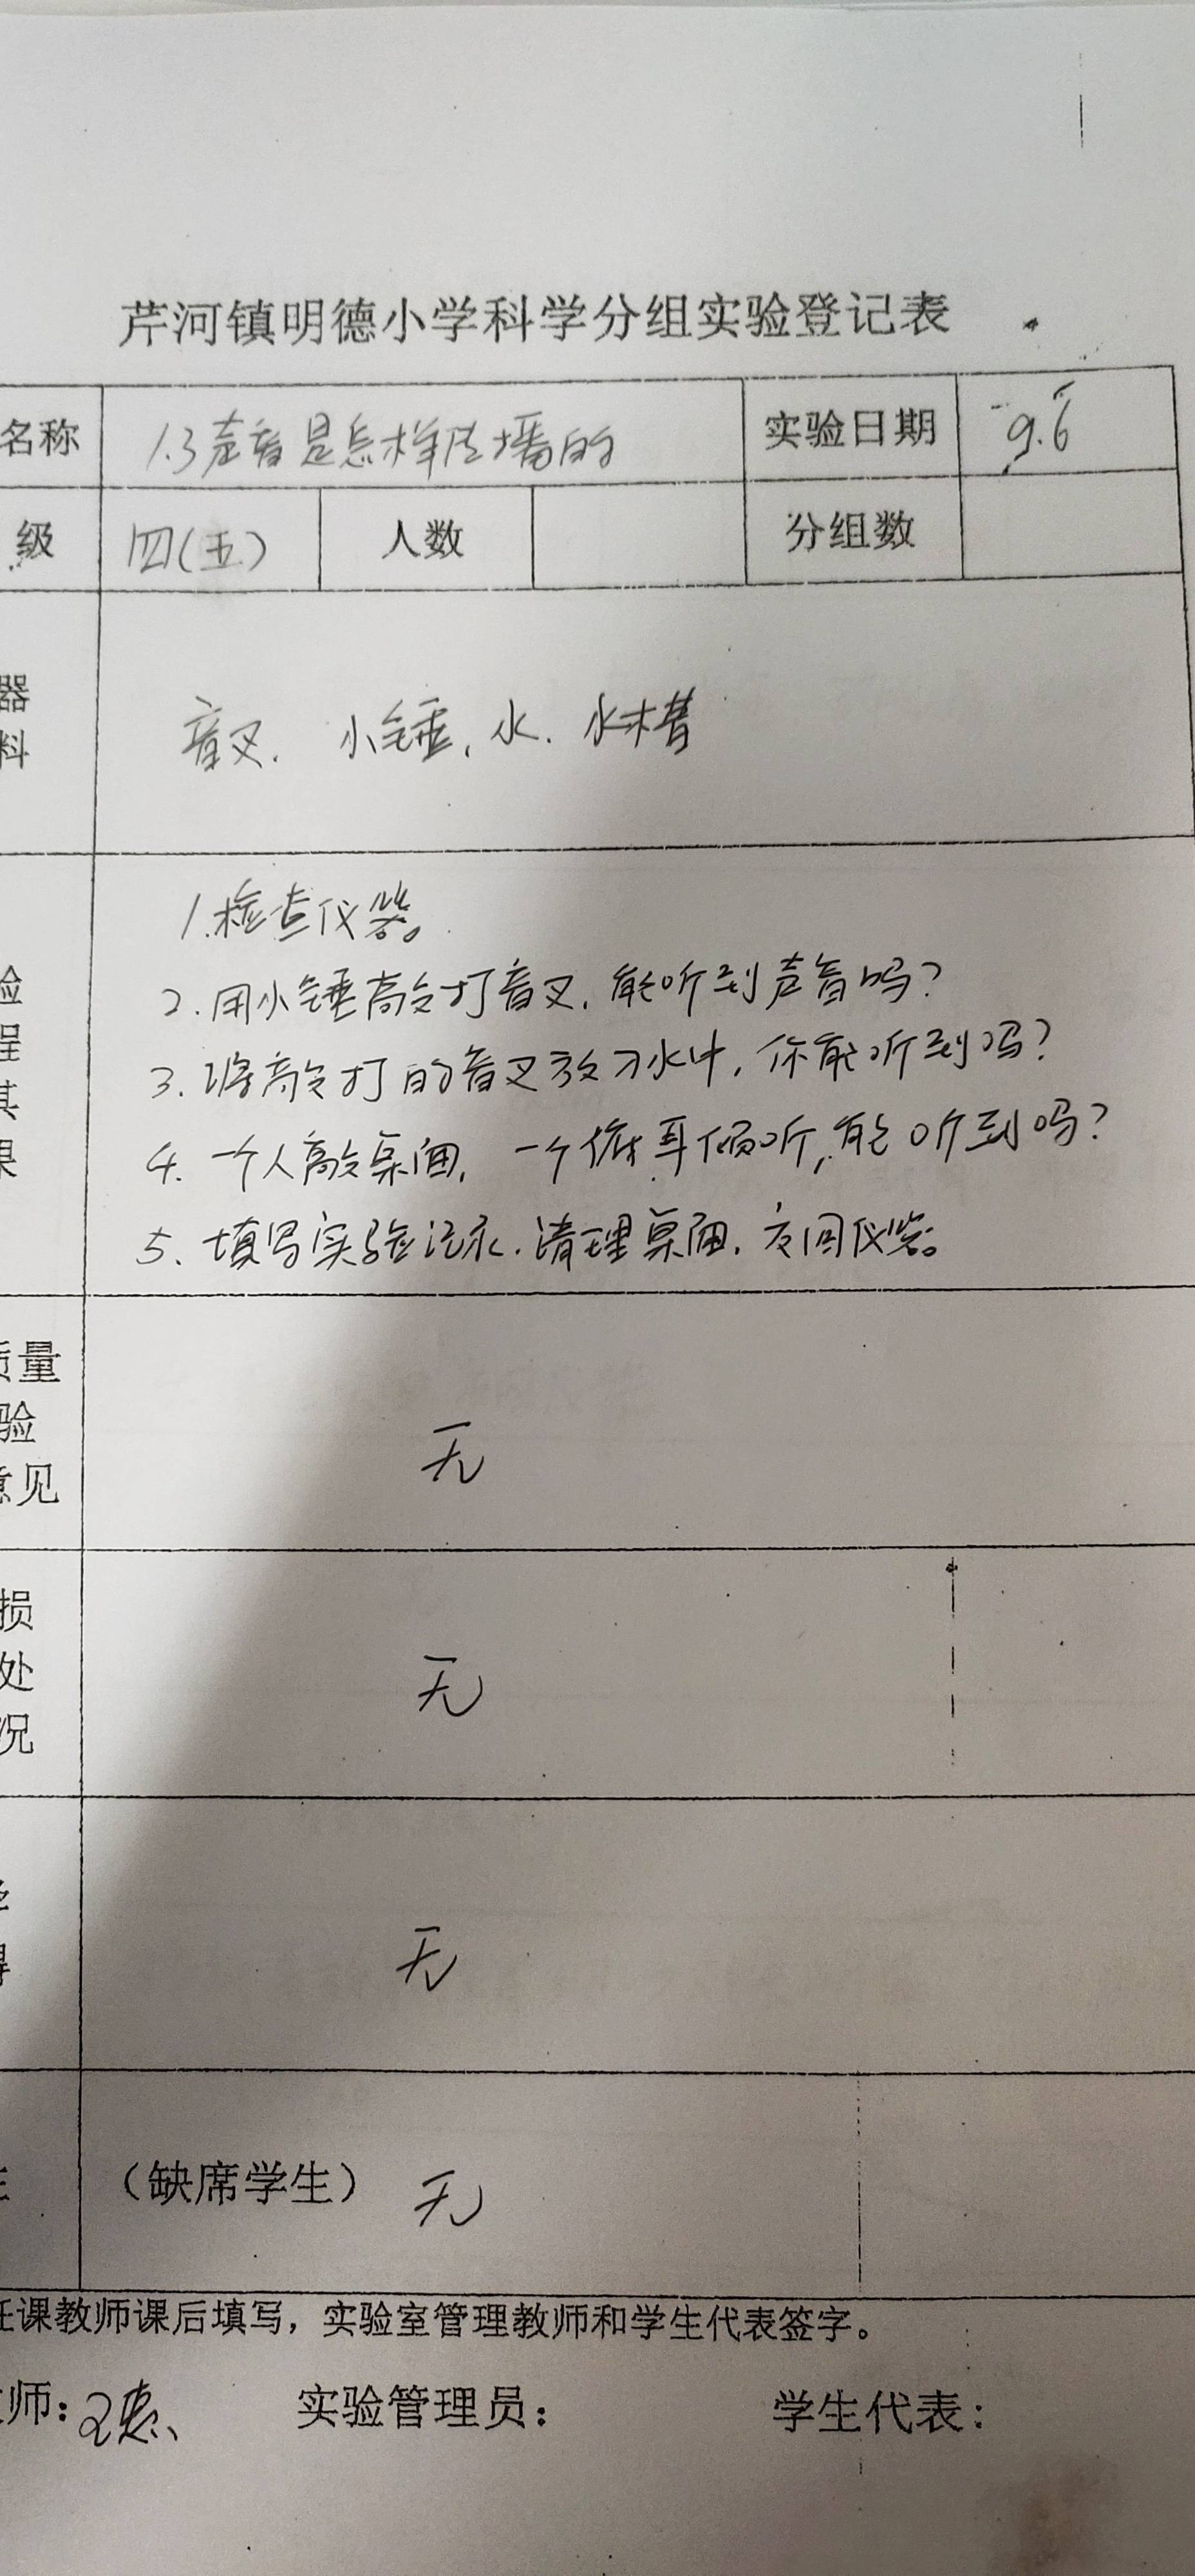 芹河镇明德小学科学分组实验登记表
名称 1.3声音是怎样传播的 实验日期 9.6
级 四(五) 人数 分组数
器
料
音叉. 小锤, 水. 水槽
1.检查仪器。
验
程
其
果
2.用小锤敲打音叉, 能听到声音吗?
3.将敲打的音叉放入水中, 你能听到吗?
4.一个人敲桌面, 一个俯耳倾听, 能听到吗?
5、填写实验记录. 清理桌面. 放回仪器。
质量
验
意见
无
损
处
况
无
得
无
(缺席学生) 无
任课教师课后填写，实验室管理教师和学生代表签字。
师: 实验管理员: 学生代表: